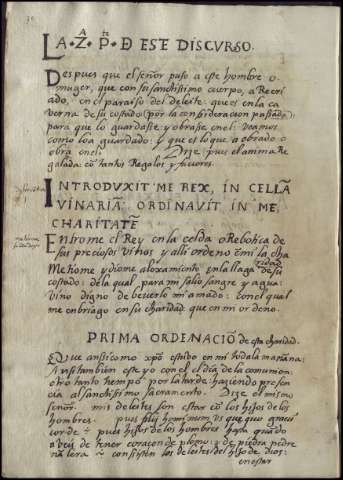 LA .2ª. Pte. DE ESTE DISCVRSO.
Despues que el señor puso a este hombre o
muger, que con su sanctissimo cuerpo, a Recri
ado, en el paraiso del deleite: que es en la ca
verna de su costado (por la consideracion passada)
para que lo guardasse y obrasse en el: veamos
como lo a guardado: y que es lo que a obrado o
obra en el: Dize pues el anima Re
galada: cõ tantos Regalos y fauores.
INTRODVXIT ME REX, IN CELLÃ
VINARIÃ ORDINAVIT IN ME,
CHARITATẼ
Entrome el Rey en la celda o Rebotica de
sus preciosos vinos y alli ordeno ẽ mi la cha
ridad
Metiome y diome aloxamiento en la llaga de su
costado: de la qual, para mi salio sangre y agua:
vino digno de beuerlo mi amado: con el qual
me enbriago en su charidad que en mi ordeno.
PRIMA ORDENACIÕ de esta charidad.
Que ansi como xpõ estubo en mi toda la mañana:
Ansi tambien este yo con el el dia de la comunion:
otro tanto tiempo por la tarde: haziendo presen
cia al sanctissimo sacramento. Dize el mismo
señor: mis deleites son estar cõ los hijos de los
hombres.
corde pues hijos de los hombres hasta quãdo
aveis de tener coraçon de plomo: y de piedra
consisten los deleites del hijo de dios:
en estar